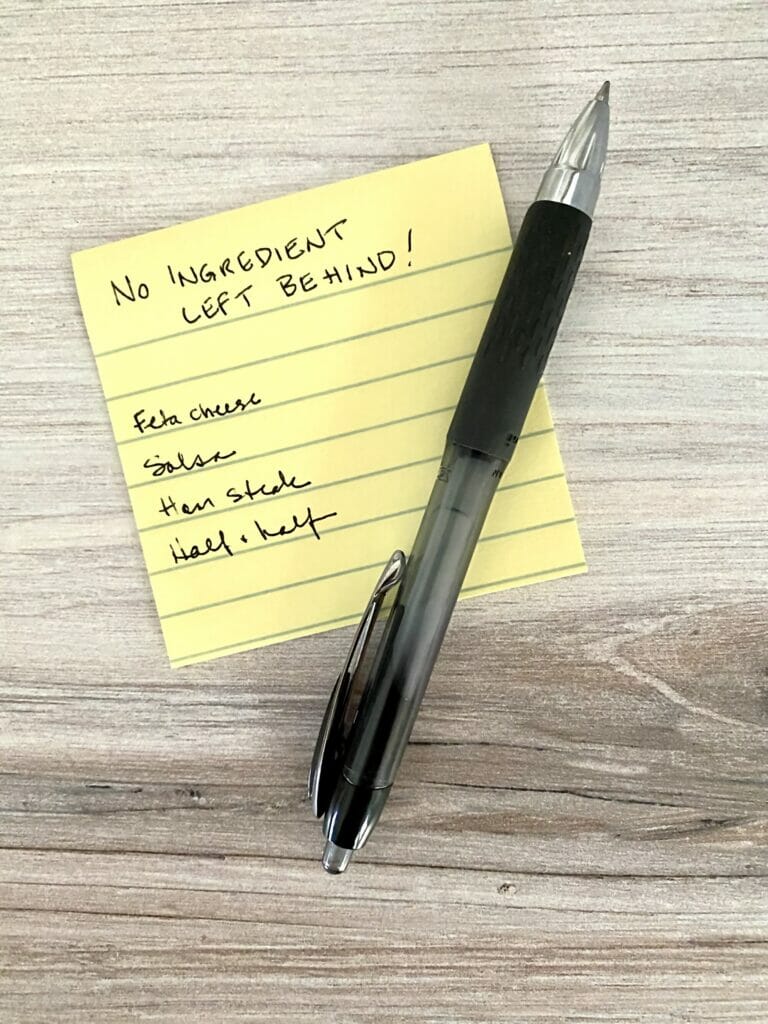 No INGREDIENT
LEFT BEHIND!
Feta cheese
Salsa
Ham steak
Half + half